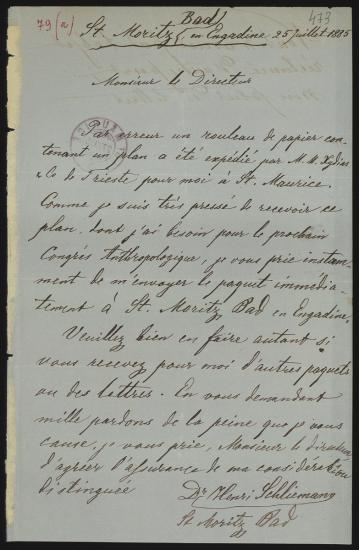 79 (a)
473
Bad
St. Moritz, en Engadine, 25 Juillet 1885
Monsieur le Directeur
Par erreur un rouleau de papier con-
tenant un plan a été expédié par M. M.
& Co de Trieste pour moi à St. Maurice.
Comme je suis très pressé de recevoir ce
plan, dont j'ai besoin pour le prochain
Congrès Anthropologique, je vous prie instam-
ment de m'envoyer le paquet immédia-
tement à St. Moritz Bad en Engadine.
Veuillez bien en faire autant si
vous recevez pour moi d'autres paquets
ou des lettres. En vous demandant
mille pardons de la peine que je vous
cause, je vous prie, Monsieur le directeur
d'agréer l'assurance de ma considération
distinguée
Dr Henri Schliemann
St Moritz Bad